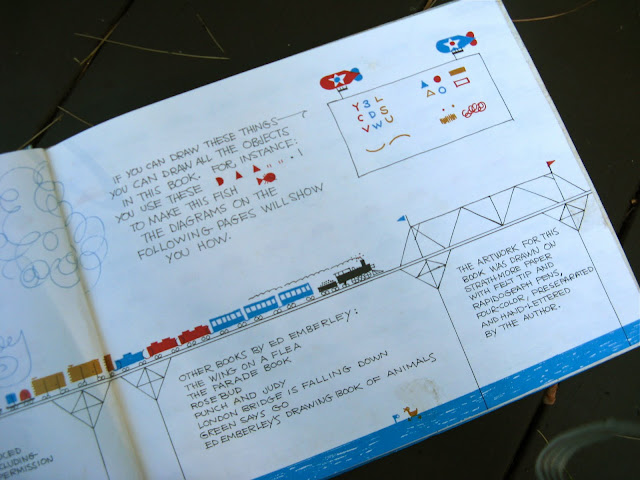 IF YOU CAN DRAW THESE THINGS
YOU CAN DRAW ALL THE OBJECTS
IN THIS BOOK. FOR, INSTANCE:
YOU USE THESE
TO MAKE THIS FISH
THE DIAGRAMS ON THE
FOLLOWING PAGES WILL SHOW
YOU HOW.
Y 3 L
C D S
V W U
THE ARTWORK FOR THIS
BOOK WAS DRAWN ON
STRATHMORE PAPER
WITH FELT TIP AND
RAPIDOGRAPH PENS,
FOUR-COLOR, PRESEPARATED
AND HAND-LETTERED
BY THE AUTHOR.
OTHER BOOKS BY ED EMBERLEY:
THE WING ON A FLEA
THE PARADE BOOK
ROSEBUD
PUNCH AND JUDY
LONDON BRIDGE IS FALLING DOWN
GREEN SAYS GO
ED EMBERLEY'S DRAWING BOOK OF ANIMALS